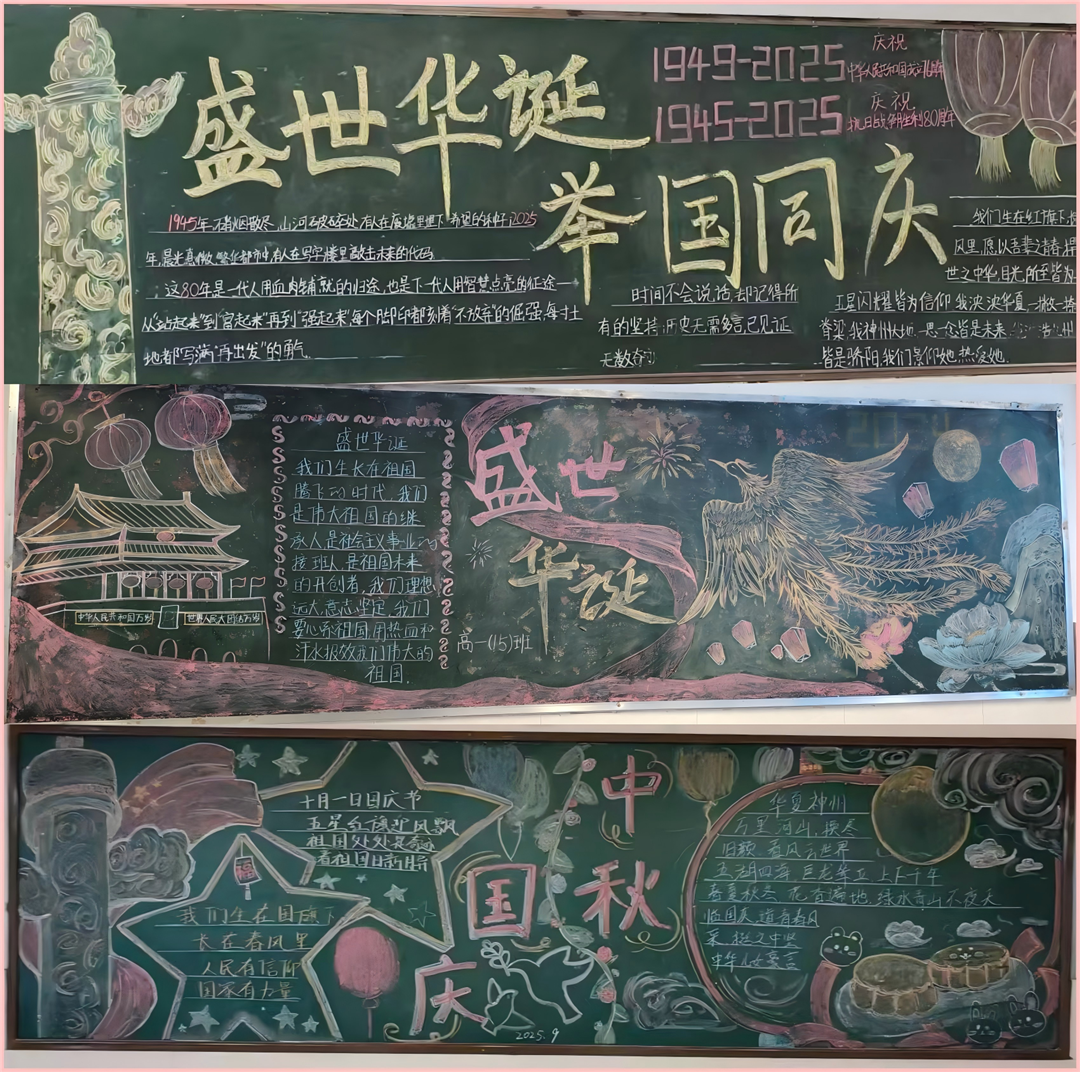 盛世华诞
举国同庆
1949-2025
庆祝
中华人民共和国成立76周年
1945-2025
庆祝
抗日战争胜利80周年
1945年,硝烟散尽,山河破碎处有人在废墟里埋下希望的种子;2025
年,晨光熹微,繁华都市中有人在写字楼里敲击未来的代码.
这80年是一代人用血肉铺就的归途,也是下一代人用智慧点亮的征途一
从“站起来”到“富起来”再到“强起来”每个脚印都刻着“不放弃”的倔强,每寸土
地都写满“再出发”的勇气.
时间不会说话,却记得所
有的坚持;历史无需多言,已见证
无数
我们生在红旗下,
风里,愿以吾辈之青春,捍
世之中华,目光所至皆为
五星闪耀皆为信仰 我泱泱华夏,一撇一捺
脊梁,我神州大地,一思一念皆是未来,
皆是骄阳,我们景仰她,热爱她.
盛世华诞
我们生长在祖国
腾飞的时代,我们
是伟大祖国的继
承人是社会主义事业的
接班人,是祖国未来
的开创者,我们理想
远大,意志坚定,我们
要心系祖国,用热血和
汗水报效我们伟大的
祖国.
盛世
华诞
高一(15)班
中华人民共和国万岁
世界人民大团结万岁
十月一日国庆节
五星红旗迎风飘
祖国处处是奇迹
看祖国日新月异
福
我们生在国旗下
长在春风里
人民有信仰
国家有力量
中秋
国庆
2025.9
华夏神州
万里河山,换尽
旧颜,看风云世界
五湖四海 巨龙 上下千年
春夏秋冬 花香满地,绿水青山不夜天
临国庆,道有春风
中华